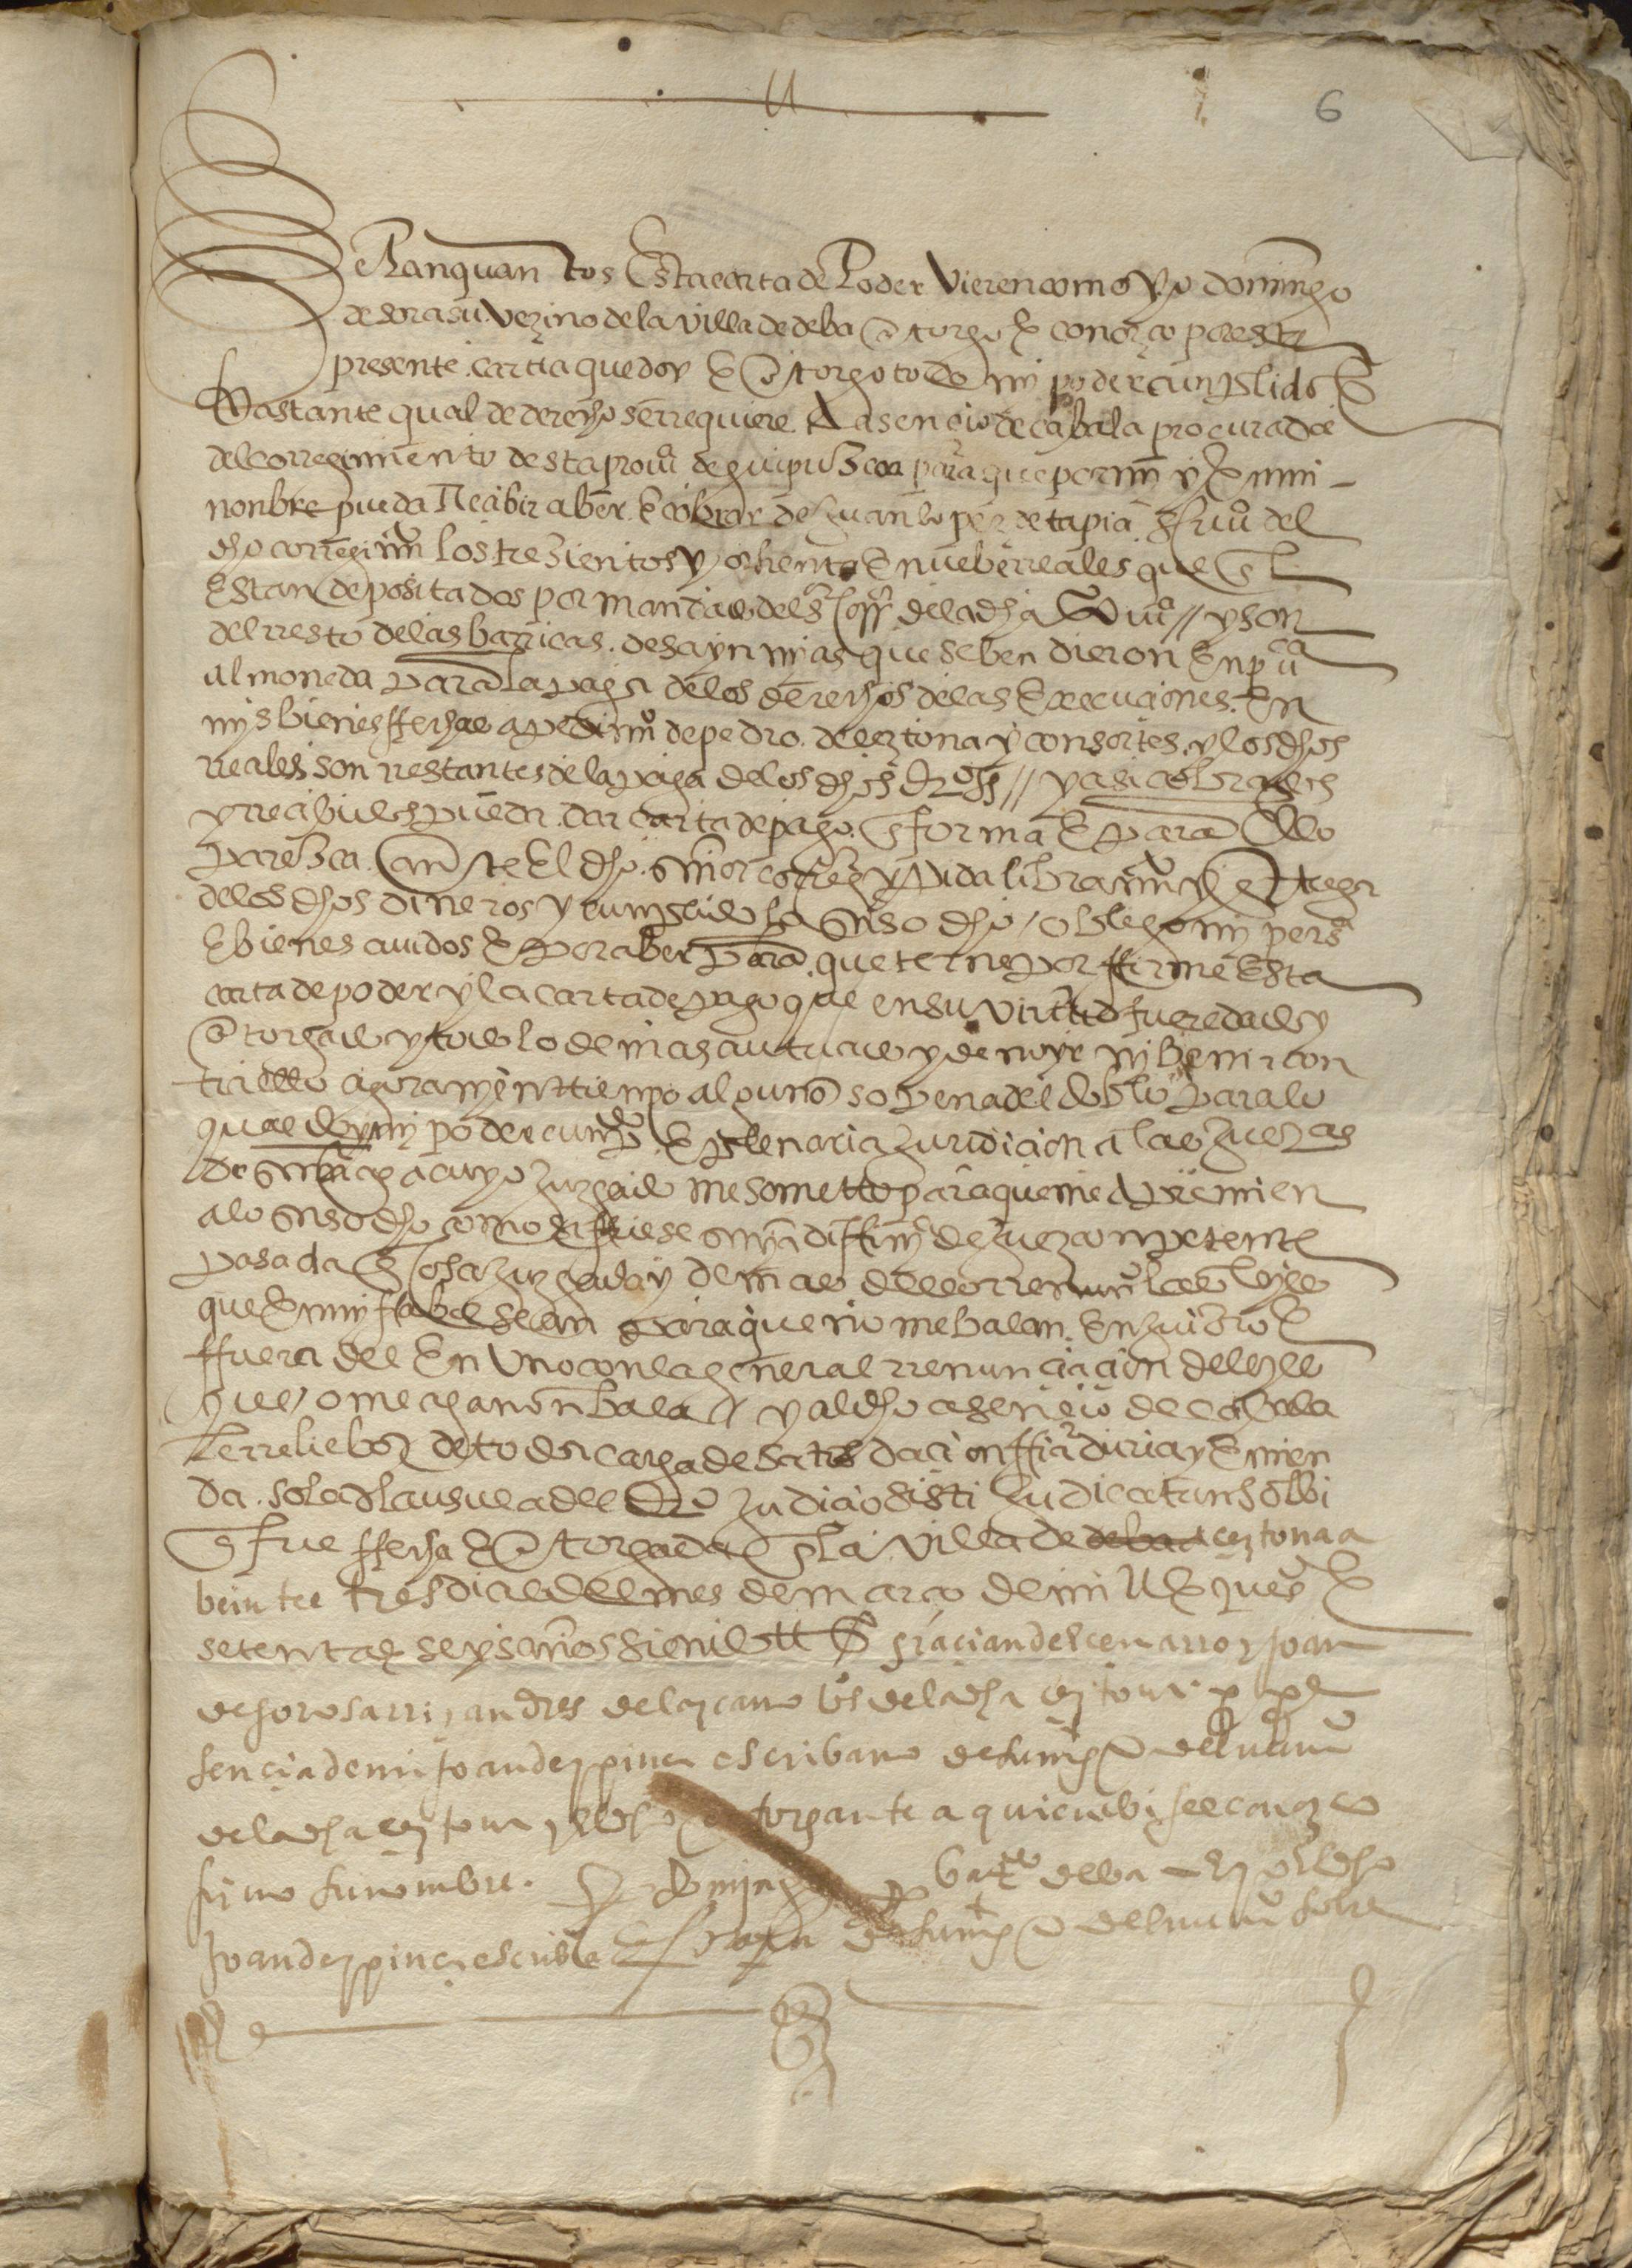 6
Sepan quantos esta carta de poder vieren como yo domingo
de sorasu vezino de la villa de deba otorgo e conozco por esta
presente carta que doy e otorgo todo mi poder cunplido e
bastante qual de derecho se rrequiere A asençio de çabala procurador
del corregimiento desta provia de guipuzcoa para que por mi y en mi
nonbre pueda Reçibir aber e cobrar de juan lopez de tapia escrivo del
dho corregimio los trezientos y ochenta e nuebe rreales que en el
estan depositados por mandado del sr corror de la dha provia // y son
del rresto de las barricas de sayn mias que se bendieron en puca
almoneda para la paga de los derechos de las execuciones en
mis bienes ffechas a pedimio de pedro de ceztona y consortes y los dhos
rreales son restantes de la paga de los dhos dros // y asi cobrados
y rreçibidos pueda dar carta de pago en forma e para ello
parezca ante el dho senor corregor y pida libramio y entrega
de los dhos dineros y cunplido lo suso dho / obligo mi persa
e bienes avidos e por aber para que terne por ffirme esta
carta de poder y la carta de pago que en su virtud fuere dado y
otorgado y todo lo demas autuado y de no yr ni benir con
tra ello agora ni en tienpo alguno so pena del doblo para lo
qual doy mi poder cunplido e plenaria juridicion a las juezas
de sus mags a cuyo juzgado me someto para que me apremien
a lo suso dho como si fuese sentencia difinitiva de juez conpetente
pasada en cosa juzgada y demas dello rrenunçio las leyes
que en mi fabor sean para que no me balan en juizio e
ffuera del en uno con la general rrenunçiaçion de leyes
que ome aga non bala // y al dho asençio de çabala
le rreliebo de toda carga de satisdaçion ffiaduria y emien
da so la clausula del dro judiçio sisti judicatun solbi
que fue ffecha e otorgada en la villa de deba a ceztona a
beinte e tres dias del mes de março de mill e quis e
setenta e seys anos siendo ts graçian de eçenarro y joan
de sorosarri y andres de lazcano vs de la dha ceztona por pre
sençia de mi joan de ezpina escribano de su magd del numo
de la dha ceztona y el dho otorgante a quien bi fee conozco
firmo su nombre. Domingo
Joan de ezpina escribano